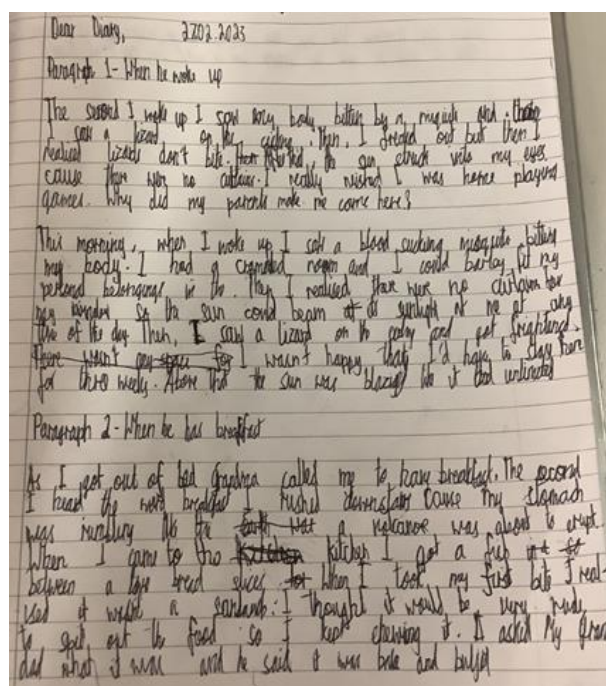 Dear Diary, 27.02.2023
Paragraph 1 - When he woke up
The second I woke up I saw my body bitten by a and
I saw a lizard on the Then, I freaked out but then I
realised lizards don't bite. the sun struck into my eyes
cause there were no I really wished I was home playing
games. Why did my parents make me come here?
This morning, when I woke up I saw a blood sucking biting
my body. I had a room and I could my
personal belongings in the. Then I realised there were no for
my window so the sun could beam sunlight at me at any
time of the day. Then, I saw a lizard on the and got frightened.
There wasn't any space for I wasn't happy that I'd have to stay here
for three weeks. Above that the sun was blazing like it had
Paragraph 2 - When he has breakfast
As I got out of bed grandma called me to have breakfast. The second
I heard the word breakfast I rushed downstairs cause my stomach
was like the a was about to erupt.
When I came to the kitchen I got a
between a bread slices When I took my first bite I real-
ised it wasn't a I thought it would be very rude
to spit out the food so I kept chewing it. I asked My Gran
dad what it was and he said it was and